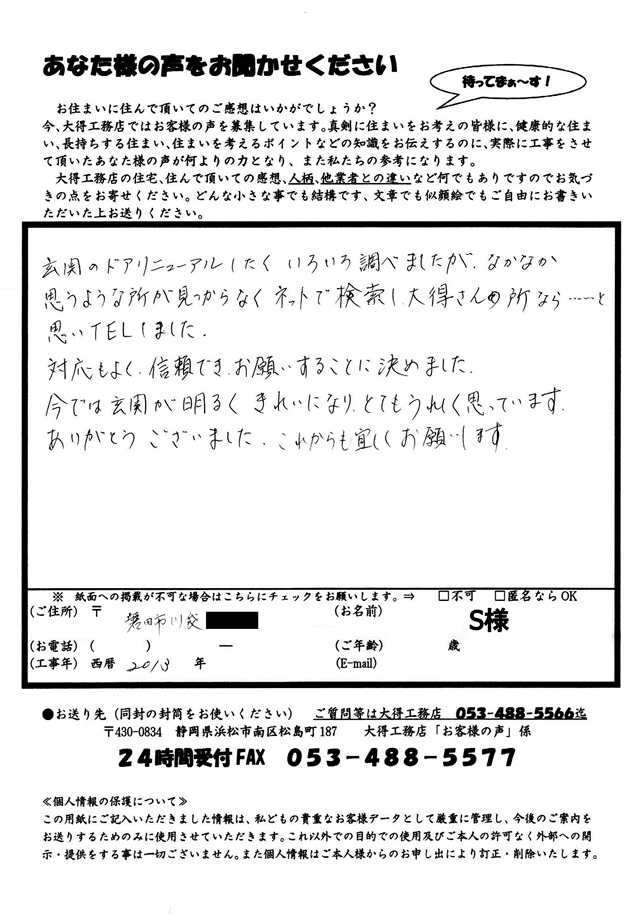 あなた様の声をお聞かせください
待ってまぁ～す！
お住まいに住んで頂いてのご感想はいかがでしょうか？
今、大得工務店ではお客様の声を募集しています。真剣に住まいをお考えの皆様に、健康的な住ま
い、長持ちする住まい、住まいを考えるポイントなどの知識をお伝えするのに、実際に工事をさせ
て頂いたあなた様の声が何よりの力となり、また私たちの参考になります。
大得工務店の住宅、住んで頂いての感想、人柄、他業者との違いなど何でもありですのでお気づ
きの点をお寄せください。どんな小さな事でも結構です、文章でも似顔絵でもご自由にお書きい
ただいた上お送りください。
玄関のドアリニューアルしたく いろいろ調べましたが、なかなか
思うような所が見つからなく ネットで検索し、大得さんの所なら……と
思いTELしました。
対応もよく、信頼でき、お願いすることに決めました。
今では玄関が明るく きれいになり、とてもうれしく思っています。
ありがとう ございました。これからも宜しく お願いします。
※ 紙面への掲載が不可な場合はこちらにチェックをお願いします。⇒ □不可 □匿名ならOK
(ご住所) 〒 磐田市川袋 (お名前) S様
(お電話) ( ) ― (ご年齢) 歳
(工事年) 西暦 2013 年 (E-mail)
●お送り先（同封の封筒をお使いください） ご質問等は大得工務店 053-488-5566迄
〒430-0834 静岡県浜松市南区松島町187 大得工務店「お客様の声」係
24時間受付FAX 053-488-5577
≪個人情報の保護について≫
この用紙にご記入いただきました情報は、私どもの貴重なお客様データとして厳重に管理し、今後のご案内を
お送りするためのみに使用させていただきます。これ以外での目的での使用及びご本人の許可なく外部への開
示・提供をする事は一切ございません。また個人情報はご本人様からのお申し出により訂正・削除いたします。